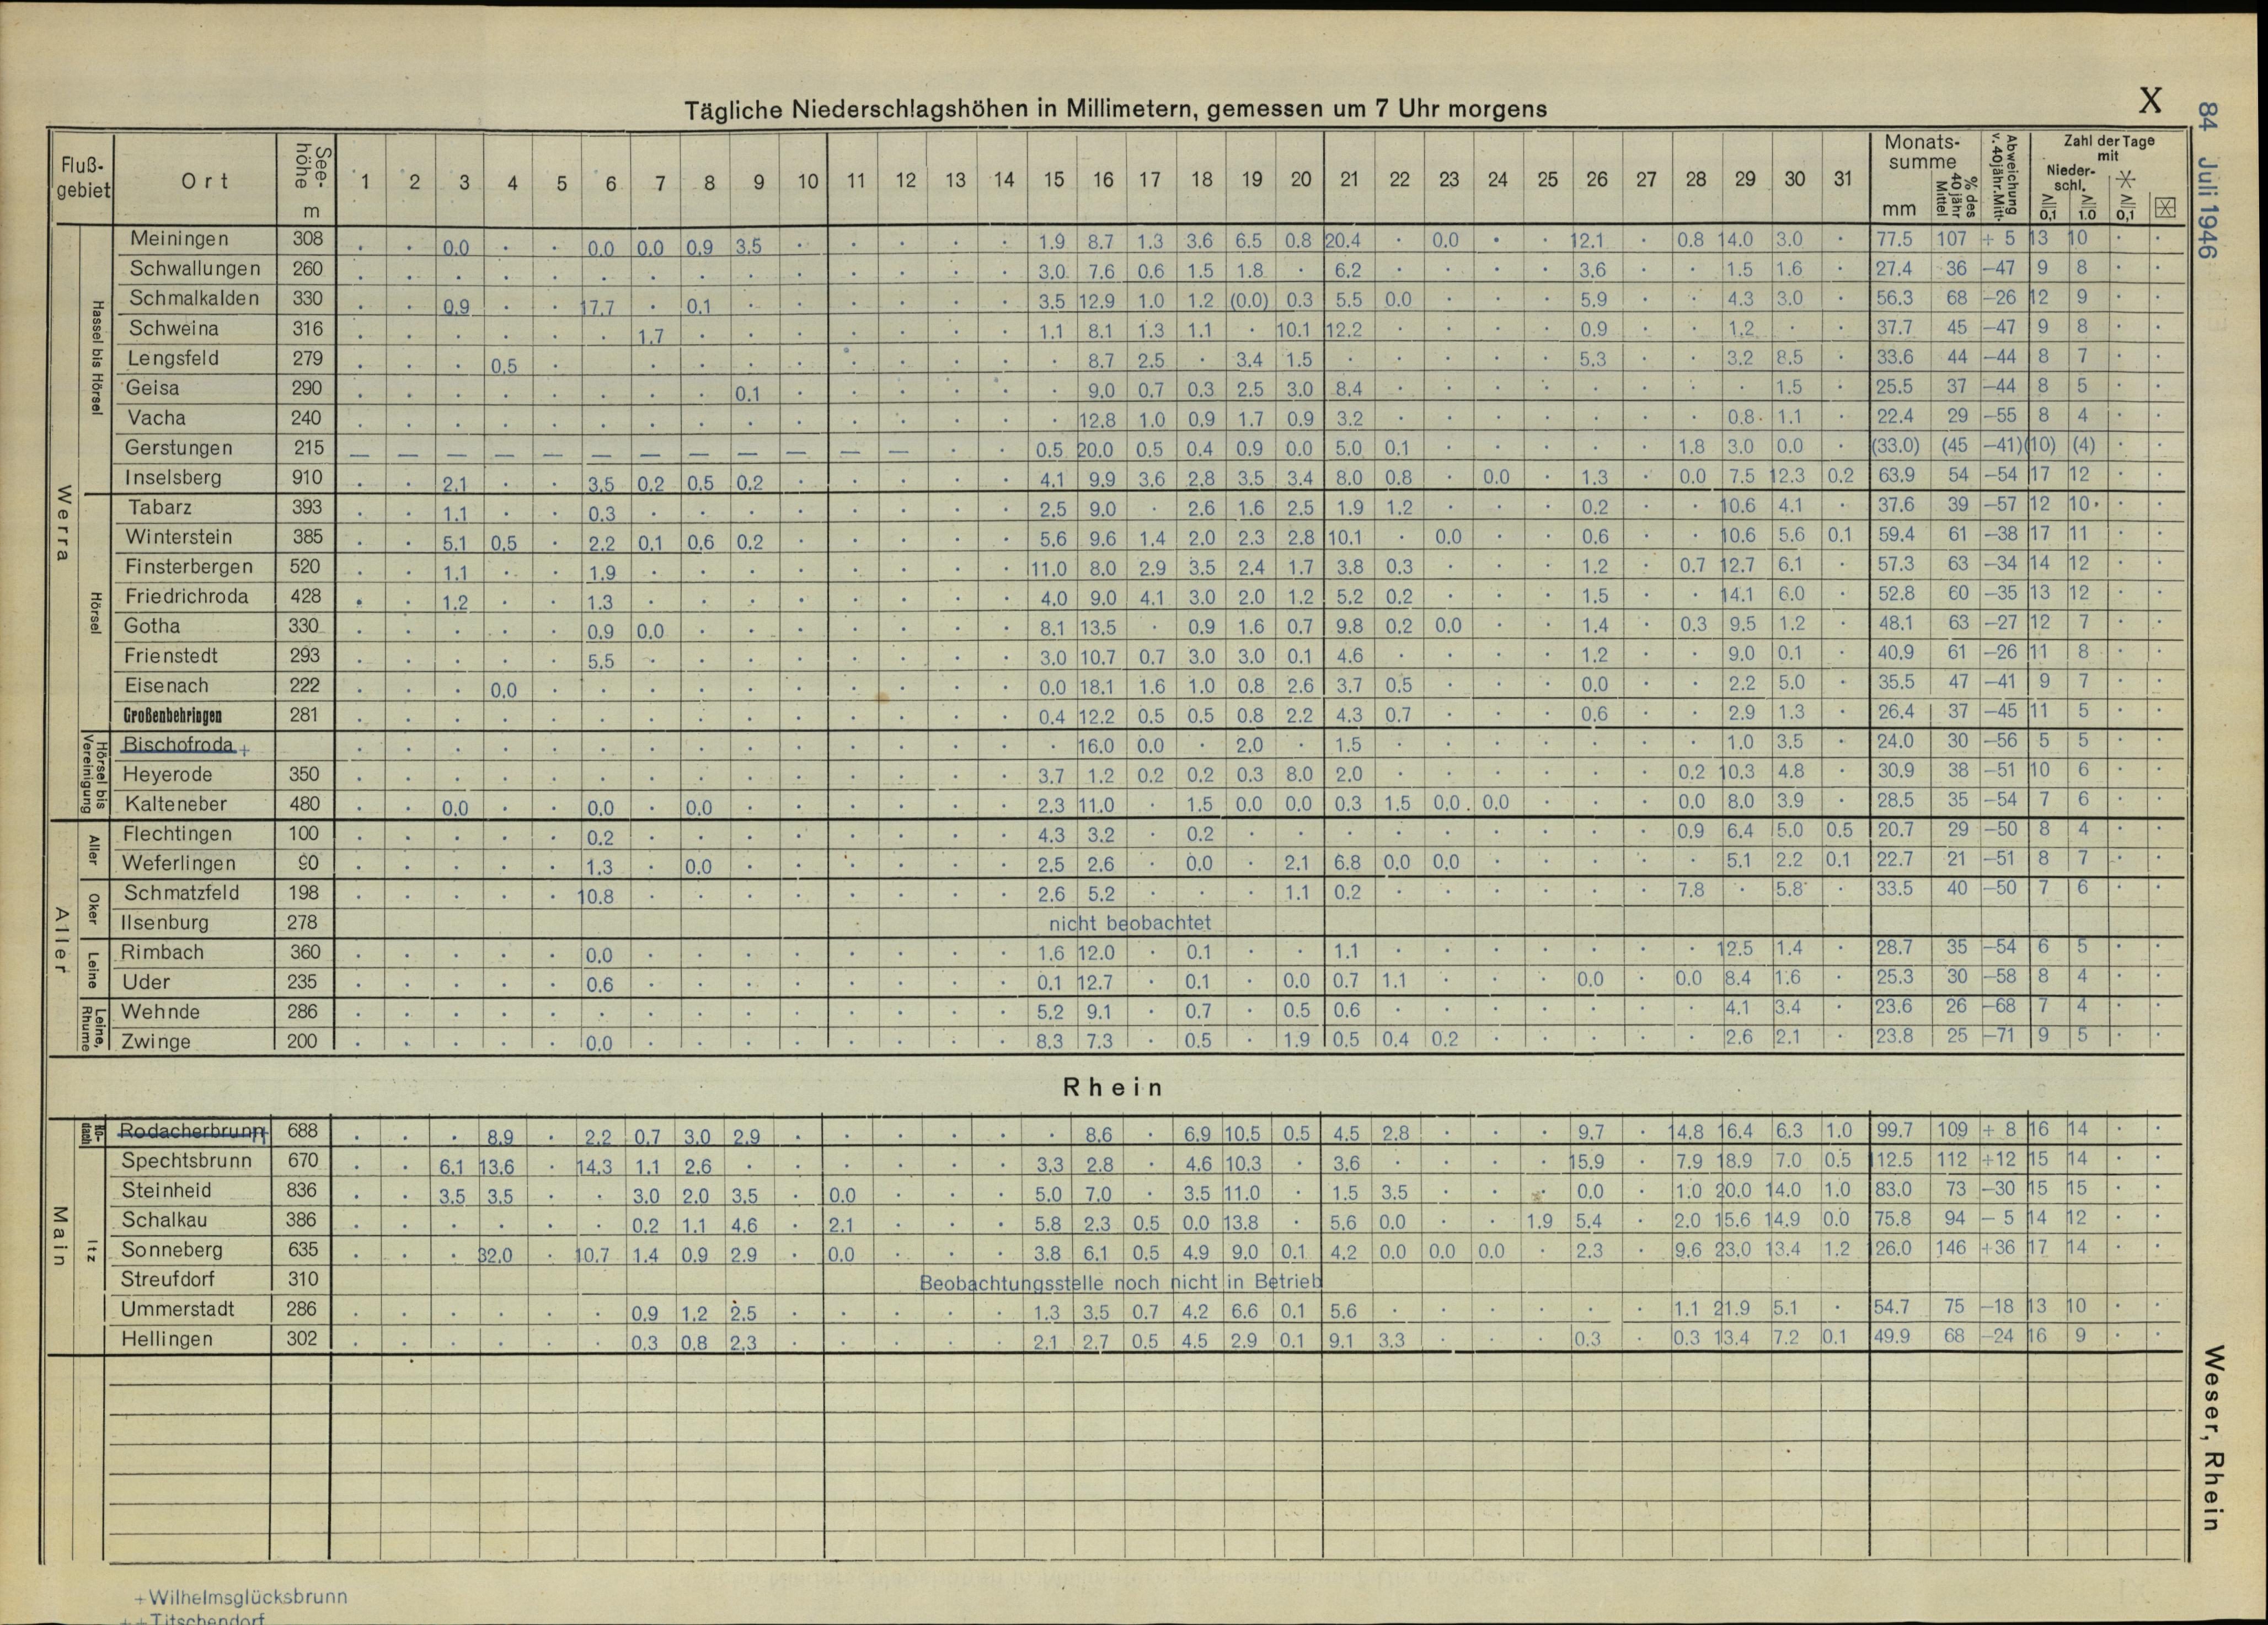 Tägliche Niederschlagshöhen in Millimetern, gemessen um 7 Uhr morgens X
84 Juli 1946
Fluß-gebiet Ort See-höhe m 1 2 3 4 5 6 7 8 9 10 11 12 13 14 15 16 17 18 19 20 21 22 23 24 25 26 27 28 29 30 31 Monats-summe mm % des 40 jähr Mittel Abweichung v. 40jähr. Mitt. Zahl der Tage mit Nieder-schl. ≧ 0,1 ≧ 1.0 ≧ 0,1
Werra
Hassel bis Hörsel
Meiningen 308 . . 0.0 . . 0.0 0.0 0.9 3.5 . . . . . 1.9 8.7 1.3 3.6 6.5 0.8 20.4 . 0.0 . . 12.1 . 0.8 14.0 3.0 . 77.5 107 + 5 13 10 . .
Schwallungen 260 . . . . . . . . . . . . . . 3.0 7.6 0.6 1.5 1.8 . 6.2 . . . . 3.6 . . 1.5 1.6 . 27.4 36 −47 9 8 . .
Schmalkalden 330 . . 0.9 . . 17.7 . 0.1 . . . . . . 3.5 12.9 1.0 1.2 (0.0) 0.3 5.5 0.0 . . . 5.9 . . 4.3 3.0 . 56.3 68 −26 12 9 . .
Schweina 316 . . . . . . 1.7 . . . . . . . 1.1 8.1 1.3 1.1 . 10.1 12.2 . . . . 0.9 . . 1.2 . . 37.7 45 −47 9 8 . .
Lengsfeld 279 . . . 0.5 . . . . . . . . . . . 8.7 2.5 . 3.4 1.5 . . . . . 5.3 . . 3.2 8.5 . 33.6 44 −44 8 7 . .
Geisa 290 . . . . . . . . 0.1 . . . . . . 9.0 0.7 0.3 2.5 3.0 8.4 . . . . . . . . 1.5 . 25.5 37 −44 8 5 . .
Vacha 240 . . . . . . . . . . . . . . . 12.8 1.0 0.9 1.7 0.9 3.2 . . . . . . . 0.8 1.1 . 22.4 29 −55 8 4 . .
Gerstungen 215 — — — — — — — — — — — — . . 0.5 20.0 0.5 0.4 0.9 0.0 5.0 0.1 . . . . . 1.8 3.0 0.0 . (33.0) (45 −41) (10) (4) . .
Inselsberg 910 . . 2.1 . . 3.5 0.2 0.5 0.2 . . . . . 4.1 9.9 3.6 2.8 3.5 3.4 8.0 0.8 . 0.0 . 1.3 . 0.0 7.5 12.3 0.2 63.9 54 −54 17 12 . .
Hörsel
Tabarz 393 . . 1.1 . . 0.3 . . . . . . . . 2.5 9.0 . 2.6 1.6 2.5 1.9 1.2 . . . 0.2 . . 10.6 4.1 . 37.6 39 −57 12 10 . .
Winterstein 385 . . 5.1 0.5 . 2.2 0.1 0.6 0.2 . . . . . 5.6 9.6 1.4 2.0 2.3 2.8 10.1 . 0.0 . . 0.6 . . 10.6 5.6 0.1 59.4 61 −38 17 11 . .
Finsterbergen 520 . . 1.1 . . 1.9 . . . . . . . . 11.0 8.0 2.9 3.5 2.4 1.7 3.8 0.3 . . . 1.2 . 0.7 12.7 6.1 . 57.3 63 −34 14 12 . .
Friedrichroda 428 . . 1.2 . . 1.3 . . . . . . . . 4.0 9.0 4.1 3.0 2.0 1.2 5.2 0.2 . . . 1.5 . . 14.1 6.0 . 52.8 60 −35 13 12 . .
Gotha 330 . . . . . 0.9 0.0 . . . . . . . 8.1 13.5 . 0.9 1.6 0.7 9.8 0.2 0.0 . . 1.4 . 0.3 9.5 1.2 . 48.1 63 −27 12 7 . .
Frienstedt 293 . . . . . 5.5 . . . . . . . . 3.0 10.7 0.7 3.0 3.0 0.1 4.6 . . . . 1.2 . . 9.0 0.1 . 40.9 61 −26 11 8 . .
Eisenach 222 . . . 0.0 . . . . . . . . . . 0.0 18.1 1.6 1.0 0.8 2.6 3.7 0.5 . . . 0.0 . . 2.2 5.0 . 35.5 47 −41 9 7 . .
Großenbehringen 281 . . . . . . . . . . . . . . 0.4 12.2 0.5 0.5 0.8 2.2 4.3 0.7 . . . 0.6 . . 2.9 1.3 . 26.4 37 −45 11 5 . .
Hörsel bis Vereinigung
Bischofroda + . . . . . . . . . . . . . . . 16.0 0.0 . 2.0 . 1.5 . . . . . . . 1.0 3.5 . 24.0 30 −56 5 5 . .
Heyerode 350 . . . . . . . . . . . . . . 3.7 1.2 0.2 0.2 0.3 8.0 2.0 . . . . . . 0.2 10.3 4.8 . 30.9 38 −51 10 6 . .
Kalteneber 480 . . 0.0 . . 0.0 . 0.0 . . . . . . 2.3 11.0 . 1.5 0.0 0.0 0.3 1.5 0.0 0.0 . . . 0.0 8.0 3.9 . 28.5 35 −54 7 6 . .
Aller
Aller
Flechtingen 100 . . . . . 0.2 . . . . . . . . 4.3 3.2 . 0.2 . . . . . . . . . 0.9 6.4 5.0 0.5 20.7 29 −50 8 4 . .
Weferlingen 90 . . . . . 1.3 . 0.0 . . . . . . 2.5 2.6 . 0.0 . 2.1 6.8 0.0 0.0 . . . . . 5.1 2.2 0.1 22.7 21 −51 8 7 . .
Oker
Schmatzfeld 198 . . . . . 10.8 . . . . . . . . 2.6 5.2 . . . 1.1 0.2 . . . . . . 7.8 . 5.8 . 33.5 40 −50 7 6 . .
Ilsenburg 278 nicht beobachtet
Leine
Rimbach 360 . . . . . 0.0 . . . . . . . . 1.6 12.0 . 0.1 . . 1.1 . . . . . . . 12.5 1.4 . 28.7 35 −54 6 5 . .
Uder 235 . . . . . 0.6 . . . . . . . . 0.1 12.7 . 0.1 . 0.0 0.7 1.1 . . . 0.0 . 0.0 8.4 1.6 . 25.3 30 −58 8 4 . .
Leine, Rhume
Wehnde 286 . . . . . . . . . . . . . . 5.2 9.1 . 0.7 . 0.5 0.6 . . . . . . . 4.1 3.4 . 23.6 26 −68 7 4 . .
Zwinge 200 . . . . . 0.0 . . . . . . . . 8.3 7.3 . 0.5 . 1.9 0.5 0.4 0.2 . . . . . 2.6 2.1 . 23.8 25 −71 9 5 . .
Rhein
Main
Ro-dach
Rodacherbrunn 688 . . . 8.9 . 2.2 0.7 3.0 2.9 . . . . . . 8.6 . 6.9 10.5 0.5 4.5 2.8 . . . 9.7 . 14.8 16.4 6.3 1.0 99.7 109 + 8 16 14 . .
Itz
Spechtsbrunn 670 . . 6.1 13.6 . 14.3 1.1 2.6 . . . . . . 3.3 2.8 . 4.6 10.3 . 3.6 . . . . 15.9 . 7.9 18.9 7.0 0.5 112.5 112 +12 15 14 . .
Steinheid 836 . . 3.5 3.5 . . 3.0 2.0 3.5 . 0.0 . . . 5.0 7.0 . 3.5 11.0 . 1.5 3.5 . . . 0.0 . 1.0 20.0 14.0 1.0 83.0 73 −30 15 15 . .
Schalkau 386 . . . . . . 0.2 1.1 4.6 . 2.1 . . . 5.8 2.3 0.5 0.0 13.8 . 5.6 0.0 . . 1.9 5.4 . 2.0 15.6 14.9 0.0 75.8 94 − 5 14 12 . .
Sonneberg 635 . . . 32.0 . 10.7 1.4 0.9 2.9 . 0.0 . . . 3.8 6.1 0.5 4.9 9.0 0.1 4.2 0.0 0.0 0.0 . 2.3 . 9.6 23.0 13.4 1.2 126.0 146 +36 17 14 . .
Streufdorf 310 Beobachtungsstelle noch nicht in Betrieb
Ummerstadt 286 . . . . . . 0.9 1.2 2.5 . . . . . 1.3 3.5 0.7 4.2 6.6 0.1 5.6 . . . . . . 1.1 21.9 5.1 . 54.7 75 −18 13 10 . .
Hellingen 302 . . . . . . 0.3 0.8 2.3 . . . . . 2.1 2.7 0.5 4.5 2.9 0.1 9.1 3.3 . . . 0.3 . 0.3 13.4 7.2 0.1 49.9 68 −24 16 9 . .
Weser, Rhein
+ Wilhelmsglücksbrunn
+ + Titschendorf